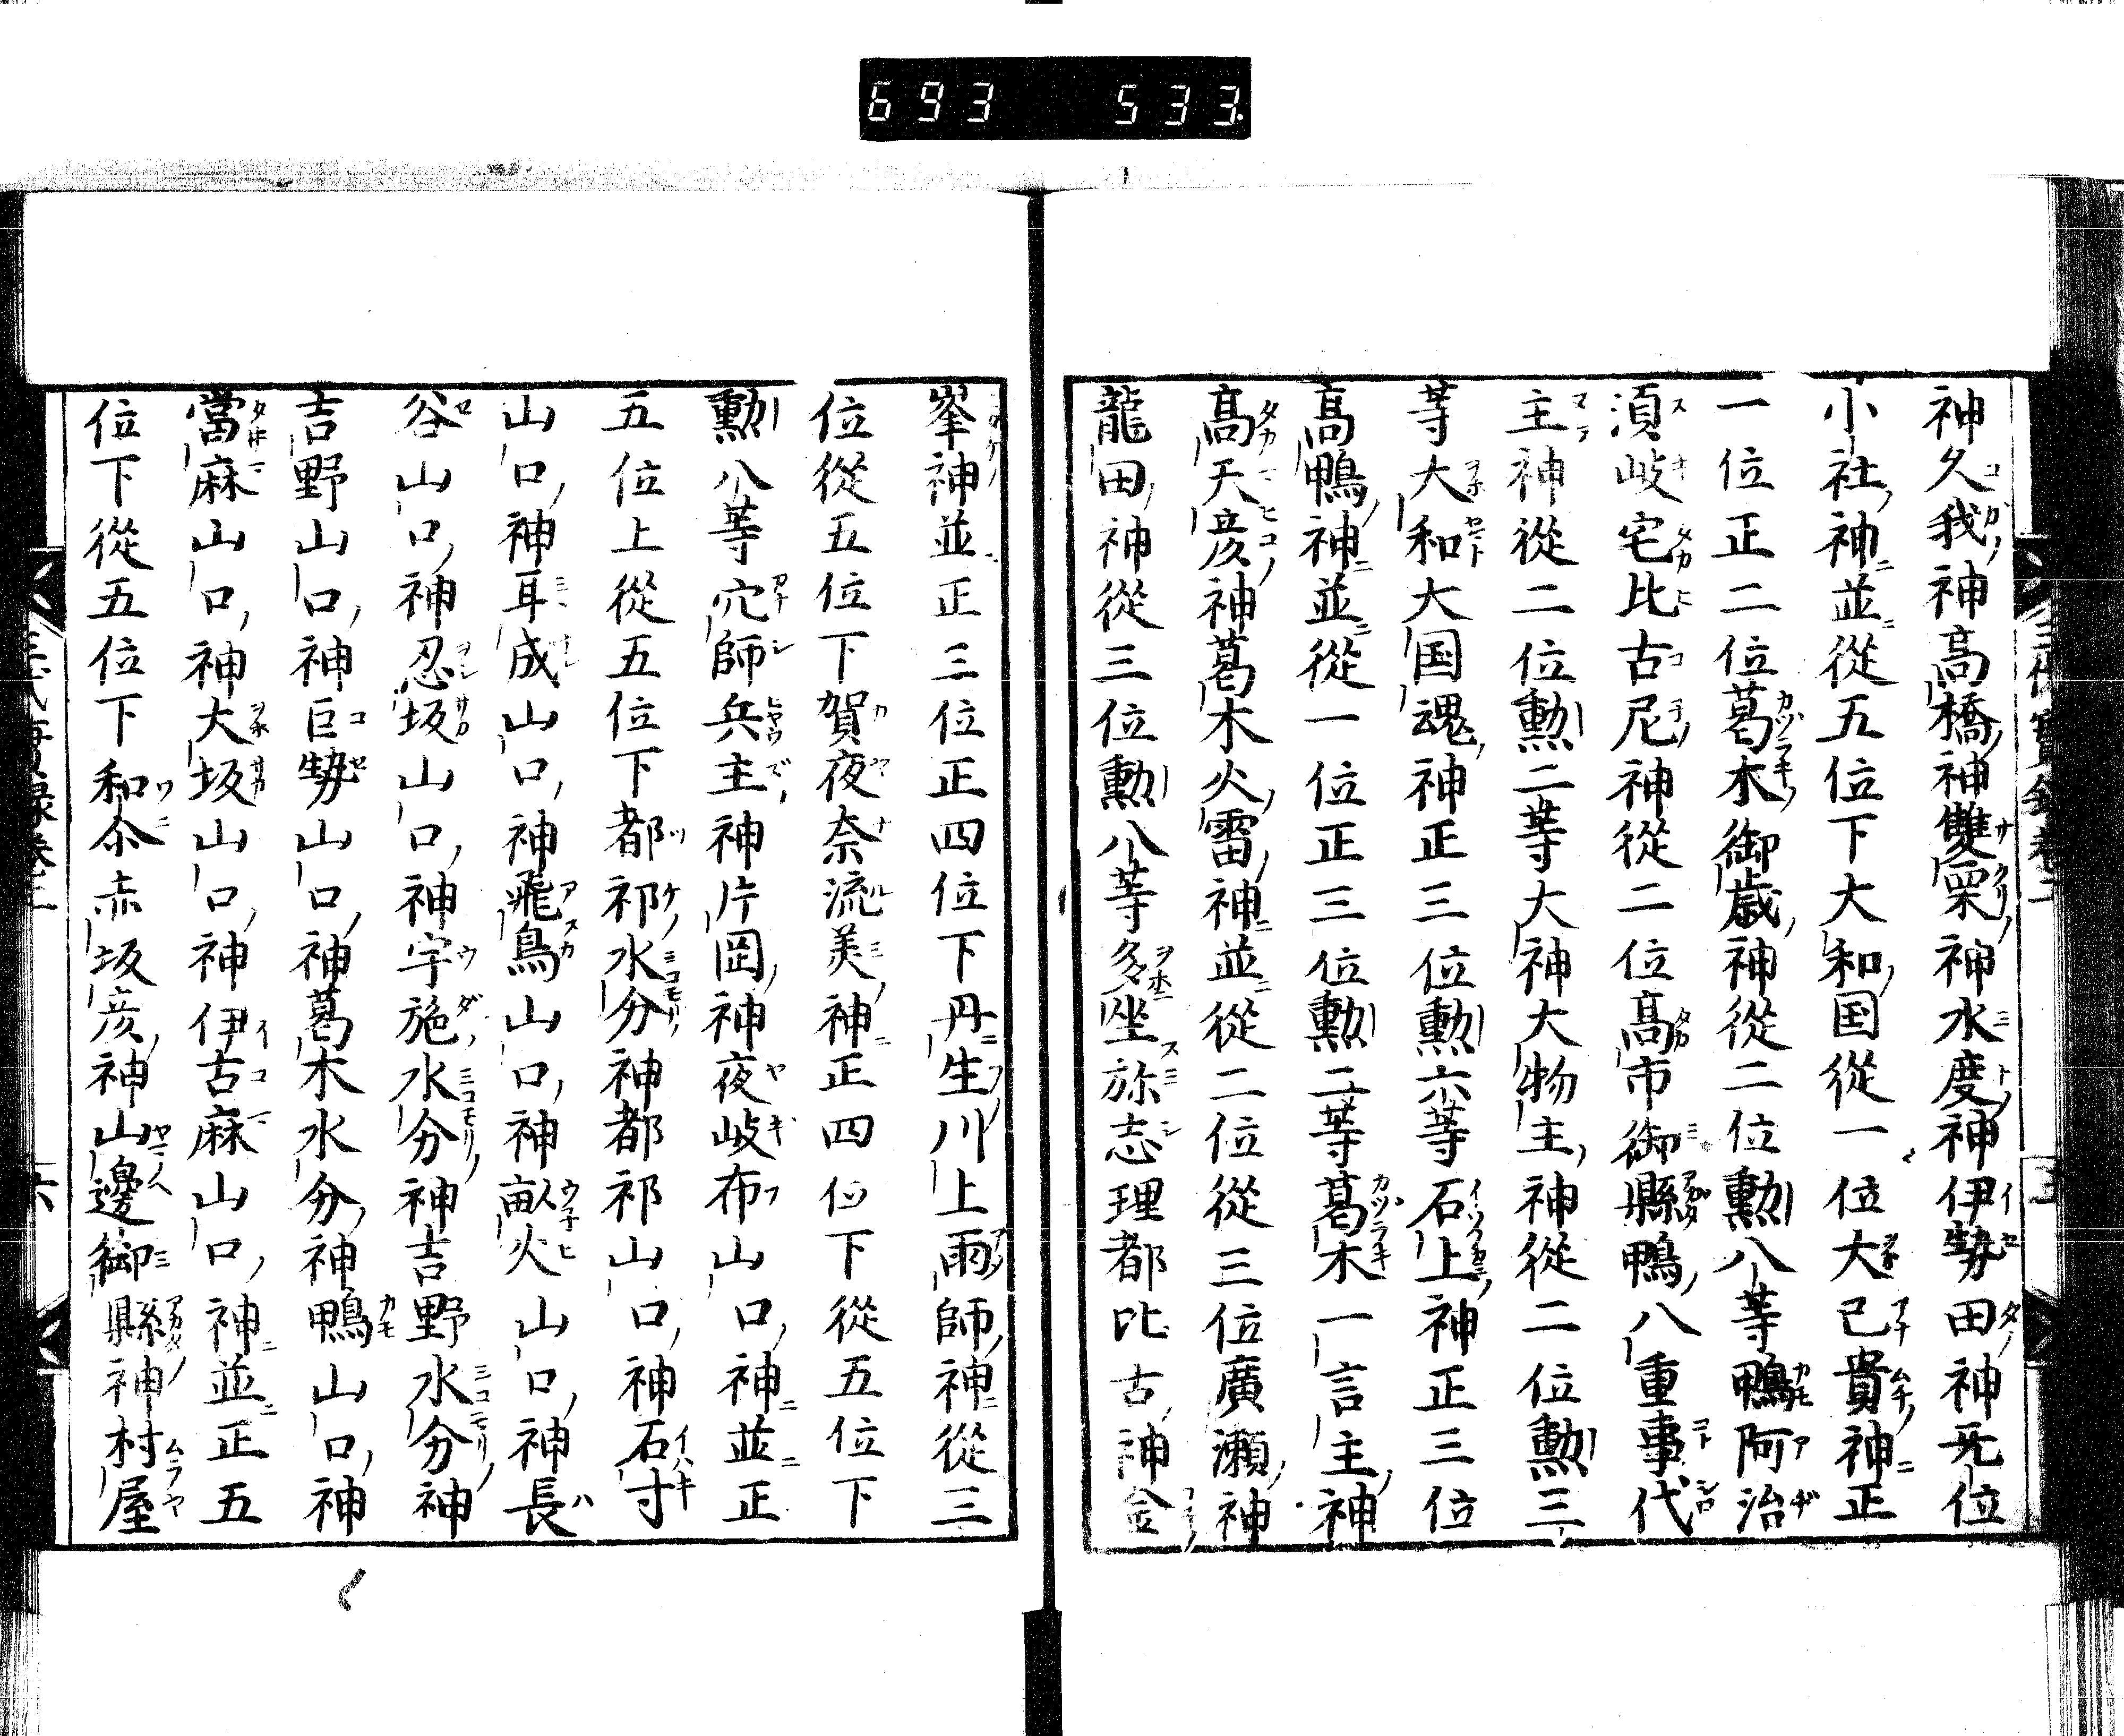 693 533
神久我神高橋神雙栗神水度神伊勢田神无位
小社神並從五位下大和国從一位大己貴神正
一位正二位葛木御歳神從二位勲八等鴨阿治
須岐宅比古尼神從二位高市御縣鴨八重事代
主神從二位勲二等大神大物主神從二位勲三
等大和大国魂神正三位勲六等石上神正三位
高鴨神並從一位正三位勲二等葛木一言主神
高天彦神葛木火雷神並從二位從三位廣瀬神
龍田神從三位勲八等多坐弥志理都比古神金
峯神並正三位正四位下丹生川上雨師神從三
位從五位下賀夜奈流美神正四位下從五位下
勲八等穴師兵主神片岡神夜岐布山口神並正
五位上從五位下都祁水分神都祁山口神石寸
山口神耳成山口神飛鳥山口神畝火山口神長
谷山口神忍坂山口神宇施水分神吉野水分神
吉野山口神巨勢山口神葛木水分神鴨山口神
當麻山口神大坂山口神伊古麻山口神並正五
位下從五位下和尒赤坂彦神山邊御縣神村屋
六